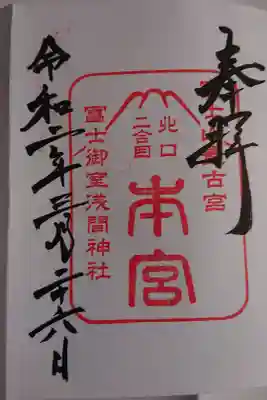 奉拝
古宮
北口
二合目
本宮
冨士御室浅間神社
令和二年三月二十六日